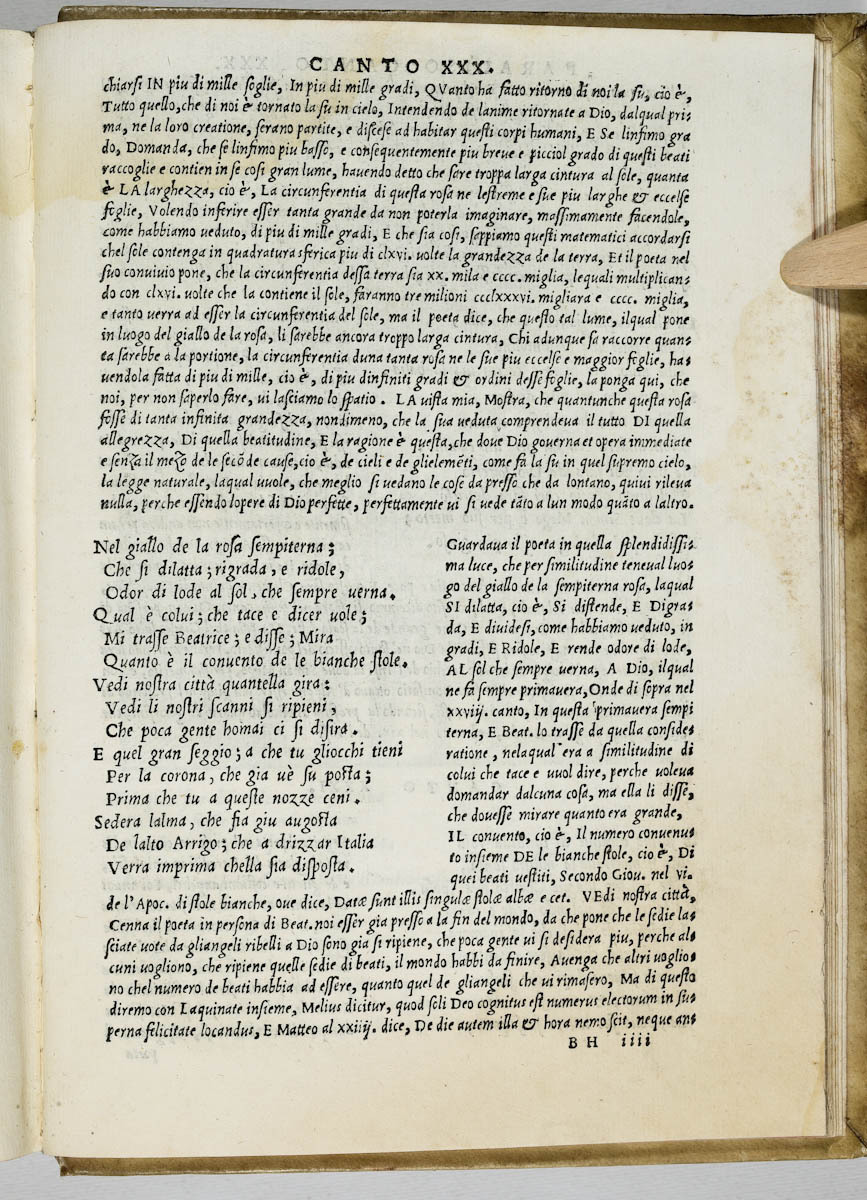 CANTO XXX.
chiarsi IN piu di mille soglie, In piu di mille gradi, QVanto ha fatto ritorno di noi la su, cio è,
Tutto quello, che di noi è tornato la su in cielo, Intendendo de lanime ritornate a Dio, dalqual pri=
ma, ne la loro creatione, serano partite, e discese ad habitar questi corpi humani, E Se linfimo gra
do, Domanda, che se linfimo piu basso, e consequentemente piu breve e picciol grado di questi beati
raccoglie e contien in se cosi gran lume, hauendo detto che sare troppa larga cintura al sole, quanta
è LA larghezza, cio è, La circunferentia di questa rosa ne lestreme e sue piu larghe & eccelse
foglie, Volendo inferire esser tanta grande da non poterla imaginare, massimamente facendole,
come habbiamo ueduto, di piu di mille gradi, E che sia cosi, sappiamo questi matematici accordarsi
chel sole contenga in quadratura sferica piu di clxvi. uolte la grandezza de la terra, Et il poeta nel
suo conuiuio pone, che la circunferentia dessa terra sia xx. mila e cccc. miglia, lequali multiplican=
do con clxvi. uolte che la contiene il sole, faranno tre milioni ccclxxxvi. migliara e cccc. miglia,
e tanto uerra ad esser la circunferentia del sole, ma il poeta dice, che questo tal lume, ilqual pone
in luogo del giallo de la rosa, li sarebbe ancora troppo larga cintura, Chi adunque sa raccorre quan=
ta sarebbe a la portione, la circunferentia duna tanta rosa ne le sue piu eccelse e maggior foglie, ha=
uendola fatta di piu di mille, cio è, di piu dinfiniti gradi & ordini desse foglie, la ponga qui, che
noi, per non saperlo fare, ui lasciamo lo spatio. LA uista mia, Mostra, che quantunche questa rosa
fosse di tanta infinita grandezza, nondimeno, che la sua ueduta comprendeua il tutto DI quella
allegrezza, Di quella beatitudine, E la ragione è questa, che doue Dio gouerna et opera immediate
e senza il mezo de le secōde cause, cio è, de cieli e de glielemēti, come fa la su in quel supremo cielo,
la legge naturale, laqual uuole, che meglio si uedano le cose da presso che da lontano, quiui rileua
nulla, perche essendo lopere di Dio perfette, perfettamente ui si uede tāto a lun modo quāto a laltro.
Nel giallo de la rosa sempiterna;
Che si dilatta; rigrada, e ridole,
Odor di lode al sol, che sempre uerna.
Qual è colui; che tace e dicer uole;
Mi trasse Beatrice; e disse; Mira
Quanto è il conuento de le bianche stole.
Vedi nostra città quantella gira:
Vedi li nostri scanni si ripieni,
Che poca gente homai ci si disira.
E quel gran seggio; a che tu gliocchi tieni
Per la corona, che gia uè su posta;
Prima che tu a queste nozze ceni.
Sedera lalma, che fia giu augosta
De lalto Arrigo; che a drizzar Italia
Verra imprima chella sia disposta.
Guardaua il poeta in quella splendidissi=
ma luce, che per similitudine teneual luo=
go del giallo de la sempiterna rosa, laqual
SI dilatta, cio è, Si distende, E Digra=
da, E diuidesi, come habbiamo ueduto, in
gradi, E Ridole, E rende odore di lode,
AL sol che sempre uerna, A Dio, ilqual
ne fa sempre primauera, Onde di sopra nel
xxviij. canto, In questa primauera sempi
terna, E Beat. lo trasse da quella conside=
ratione, nelaqual era a similitudine di
colui che tace e uuol dire, perche uoleua
domandar dalcuna cosa, ma ella li disse,
che douesse mirare quanto era grande,
IL conuento, cio è, Il numero conuenu=
to insieme DE le bianche stole, cio è, Di
quei beati uestiti, Secondo Giou. nel vi.
de l'Apoc. di stole bianche, oue dice, Datæ sunt illis singulæ stolæ albæ e cet. VEdi nostra città,
Cenna il poeta in persona di Beat. noi esser gia presso a la fin del mondo, da che pone che le sedie la=
sciate uote da gliangeli ribelli a Dio sono gia si ripiene, che poca gente ui si desidera piu, perche al=
cuni uogliono, che ripiene quelle sedie di beati, il mondo habbi da finire, Auenga che altri uoglio=
no chel numero de beati habbia ad essere, quanto quel de gliangeli che ui rimasero, Ma di questo
diremo con Laquinate insieme, Melius dicitur, quod soli Deo cognitus est numerus electorum in su=
perna felicitate locandus, E Matteo al xxiiij. dice, De die autem illa & hora nemo scit, neque an=
B H iiii